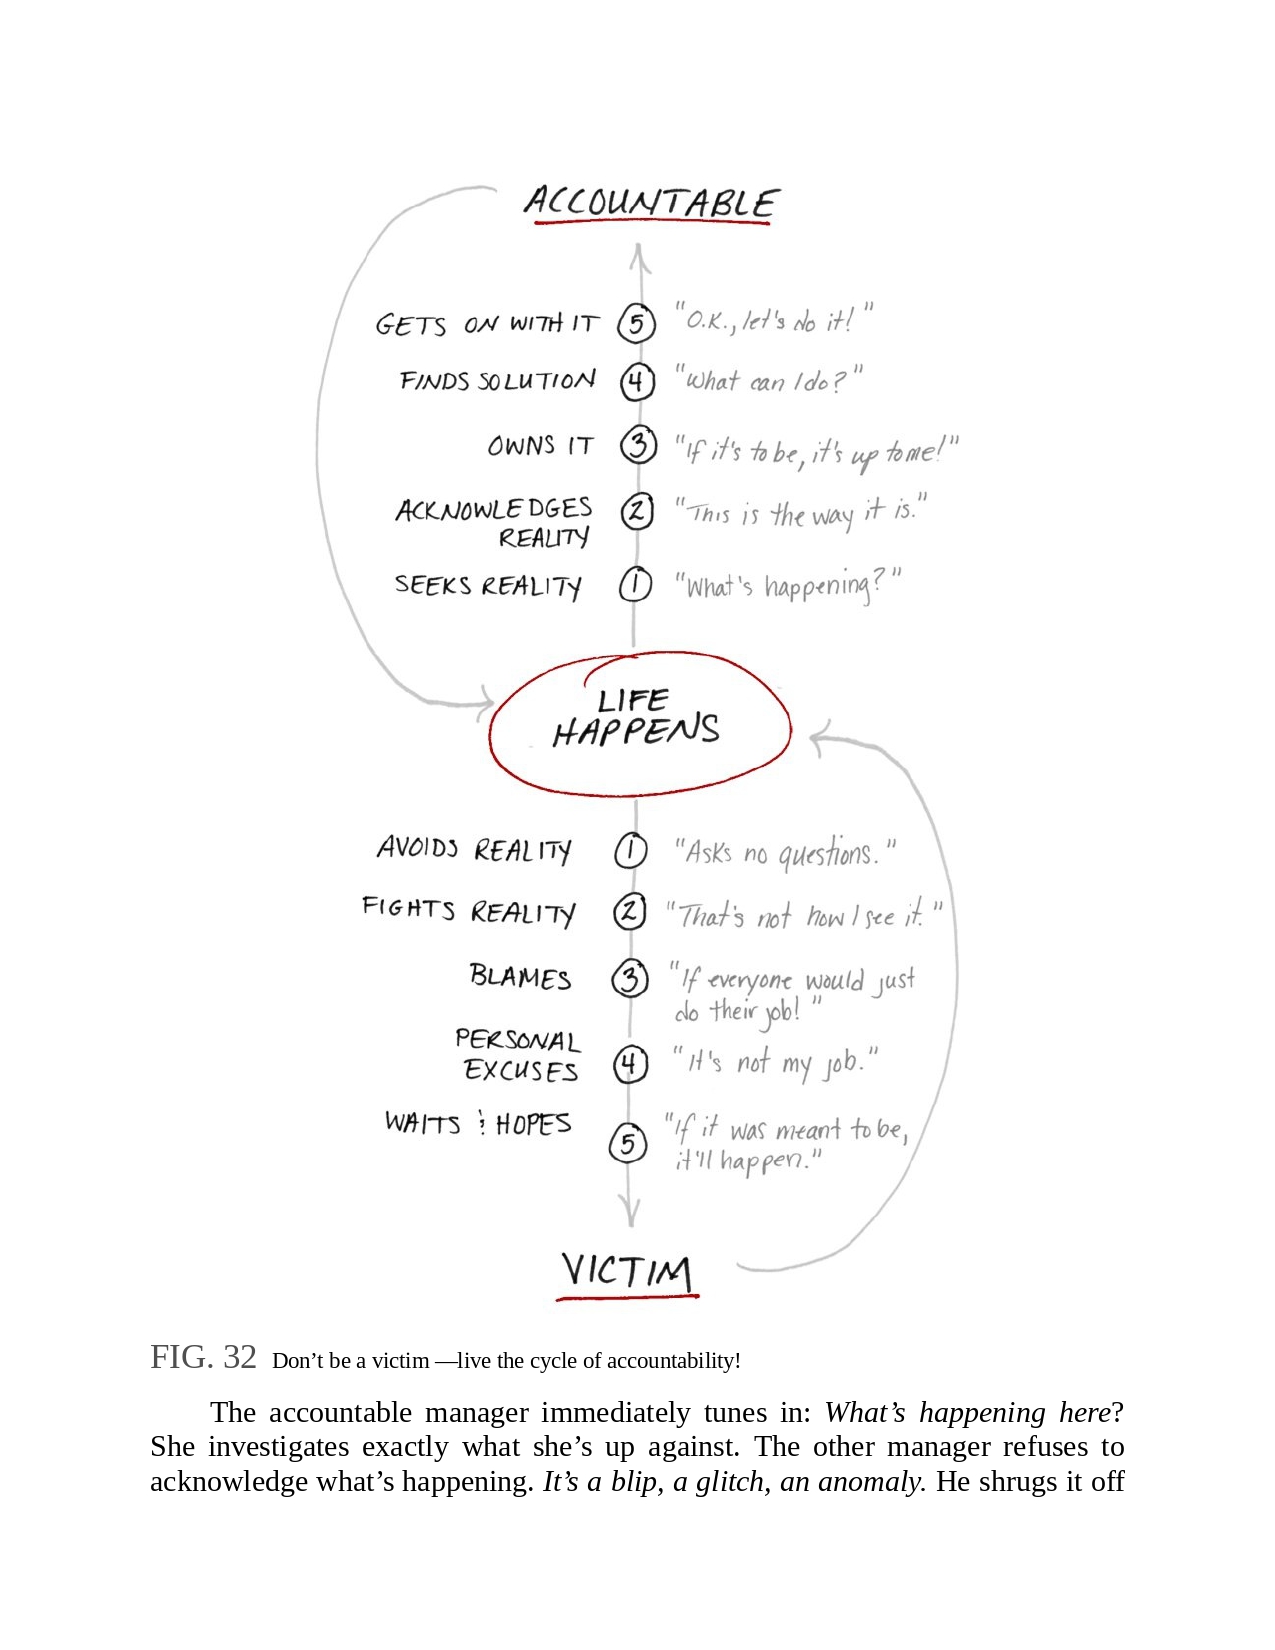 ACCOUNTABLE
GETS ON WITH IT 5 "O.K., let's do it!"
FINDS SOLUTION 4 "What can I do?"
OWNS IT 3 "If it's to be, it's up to me!"
ACKNOWLEDGES 2 "This is the way it is."
REALITY
SEEKS REALITY 1 "What's happening?"
LIFE
HAPPENS
AVOIDS REALITY 1 "Asks no questions."
FIGHTS REALITY 2 "That's not how I see it."
BLAMES 3 "If everyone would just
do their job!"
PERSONAL
EXCUSES 4 "It's not my job."
WAITS & HOPES 5 "If it was meant to be,
it'll happen."
VICTIM
FIG. 32 Don’t be a victim —live the cycle of accountability!
The accountable manager immediately tunes in: What’s happening here?
She investigates exactly what she’s up against. The other manager refuses to
acknowledge what’s happening. It’s a blip, a glitch, an anomaly. He shrugs it off